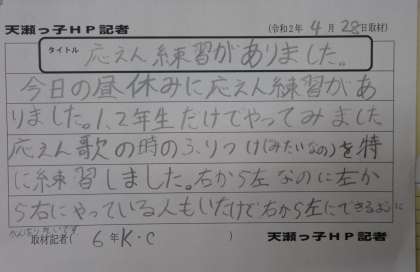 天瀬っ子HP記者
(令和2年 4月 28日取材)
タイトル 応えん練習がありました。
今日の昼休みに応えん練習があ
りました。1、2年生だけでやってみました
応えん歌の時のふりつけ(みたいなの)を特
に練習しました。右から左なのに左か
ら右にやっている人もいたけど右から左にできるように
がんばりたいです
取材記者( 6年K・C )
天瀬っ子HP記者